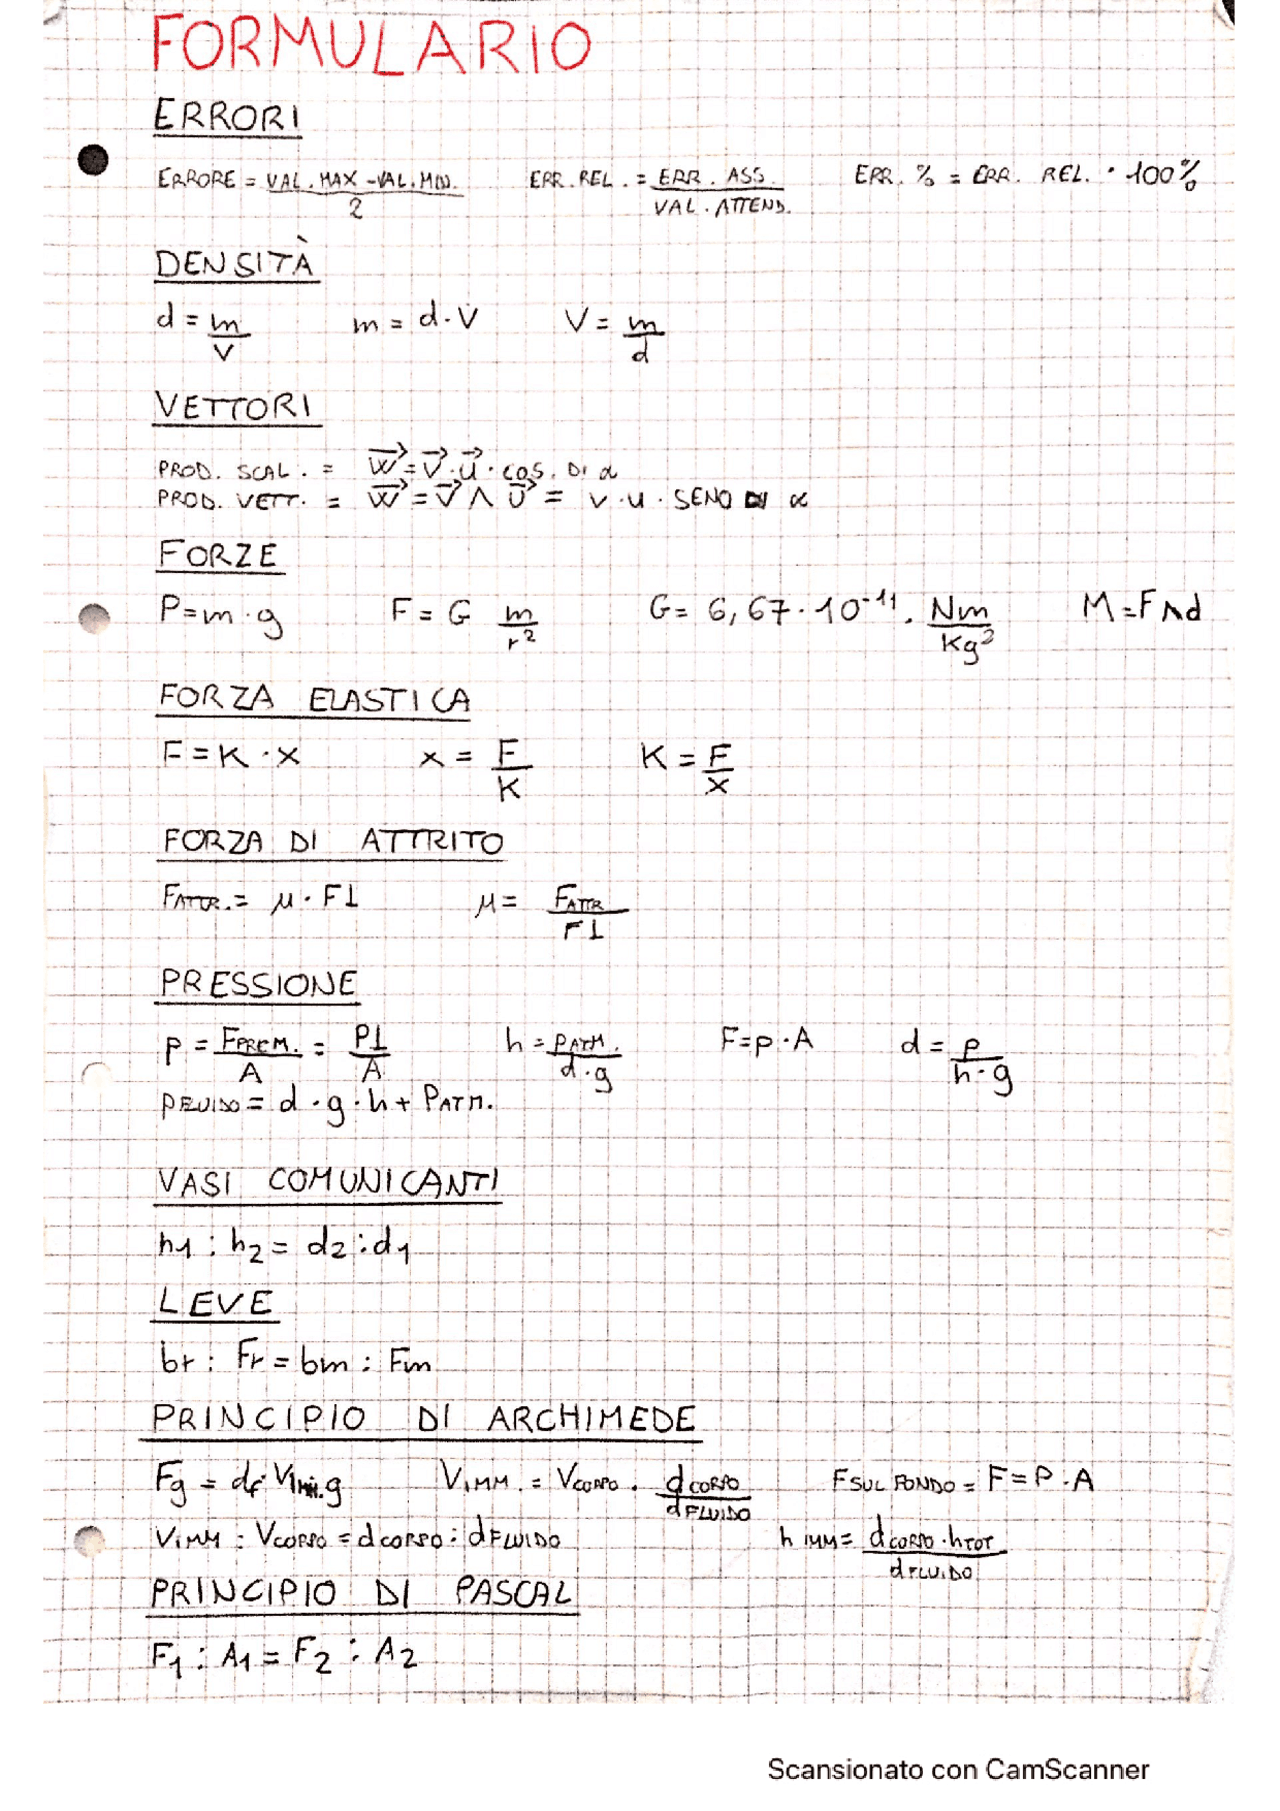 FORMULARIO
ERRORI
ERRORE = VAL. MAX - VAL. MIN. / 2 ERR. REL. = ERR. ASS. / VAL. ATTEND. ERR. % = ERR. REL. · 100%
DENSITÀ
d = m / V m = d · V V = m / d
VETTORI
PROD. SCAL. = w⃗ = v⃗ · u⃗ · cos. DI α
PROD. VETT. = w⃗ = v⃗ ∧ u⃗ = v · u · SENO DI α
FORZE
P = m · g F = G m / r² G = 6,67 · 10⁻¹¹ · Nm / Kg² M = F ∧ d
FORZA ELASTICA
F = K · x x = F / K K = F / x
FORZA DI ATTRITO
FATTR. = μ · F⊥ μ = FATTR / F⊥
PRESSIONE
p = FPREM. / A = P⊥ / A h = PATM. / d · g F = p · A d = p / h · g
PFLUIDO = d · g · h + PATM.
VASI COMUNICANTI
h1 : h2 = d2 : d1
LEVE
br : Fr = bm : Fm
PRINCIPIO DI ARCHIMEDE
Fg = df · Vimm. g VIMM. = VCORPO · dCORPO / dFLUIDO F SUL FONDO = F = P · A
VIMM : VCORPO = dCORPO : dFLUIDO h IMM = dCORPO · hTOT / dFLUIDO
PRINCIPIO DI PASCAL
F1 : A1 = F2 : A2
Scansionato con CamScanner